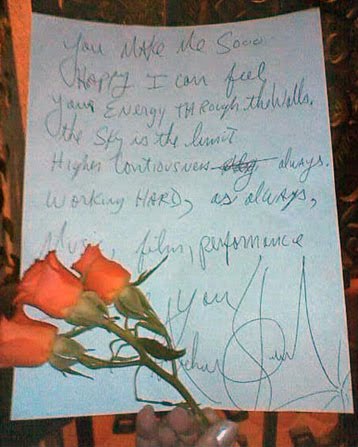 You Make Me Sooo
HAPPY I can feel
Your ENERGY THROUGH the Walls.
the Sky is the limit
Higher Contiousness always.
Working HARD, as always,
Music, film, performance
You